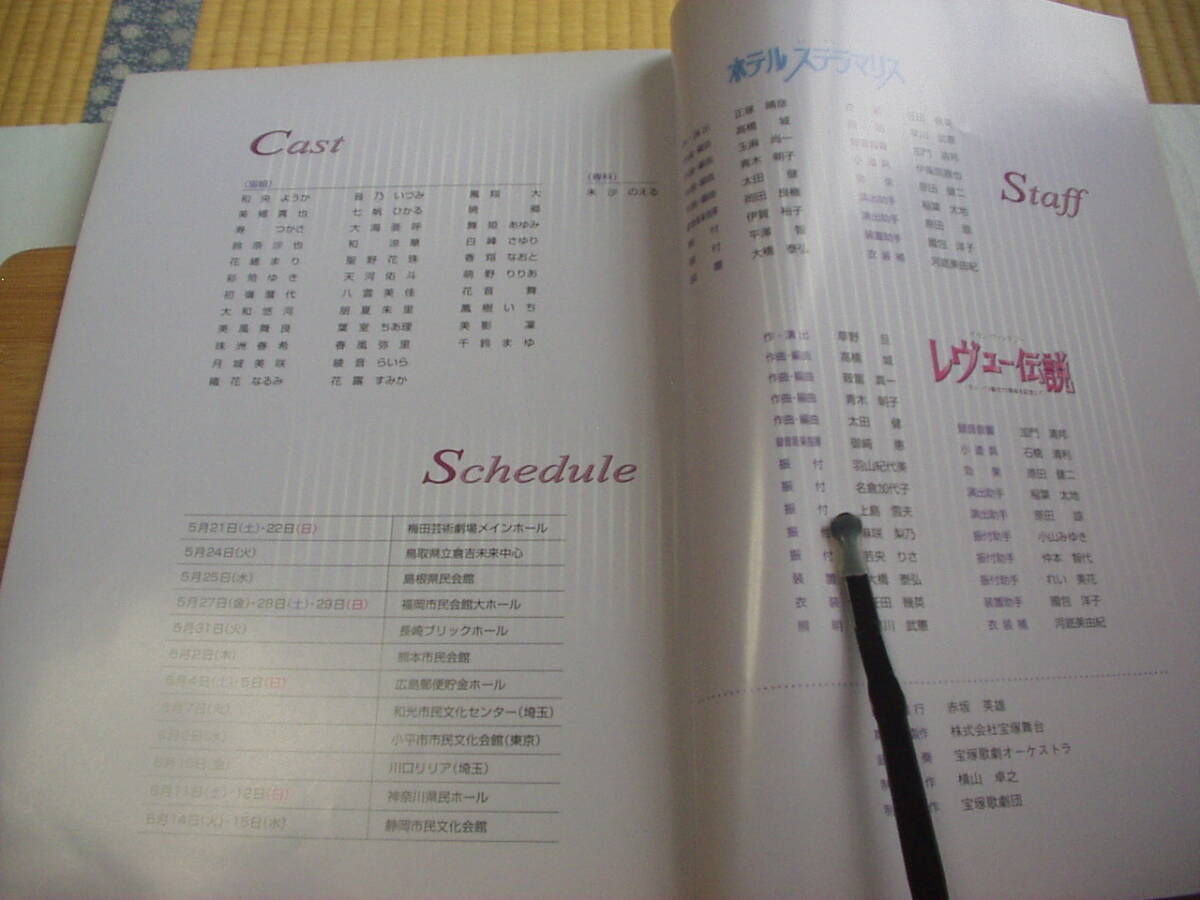 Cast
(宙組)
和央ようか 音乃いづみ 鳳翔大
美郷真也 七帆ひかる 暁郷
寿つかさ 大海亜呼 舞姫あゆみ
鈴奈沙也 和涼華 白峰さゆり
花總まり 聖野花珠 香翔なおと
彩苑ゆき 天河佑斗 萌野りりあ
初嶺麿代 八雲美佳 花音舞
大和悠河 朋夏朱里 鳳樹いち
美風舞良 葉室ちあ理 美影凜
珠洲春希 春風弥里 千鈴まゆ
月城美咲 綾音らいら
織花なるみ 花露すみか
(専科)
未沙のえる
Schedule
5月21日(土)・22日(日) 梅田芸術劇場メインホール
5月24日(火) 鳥取県立倉吉未来中心
5月25日(水) 島根県民会館
5月27日(金)・28日(土)・29日(日) 福岡市民会館大ホール
5月31日(火) 長崎ブリックホール
6月2日(木) 熊本市民会館
6月4日(土)・5日(日) 広島郵便貯金ホール
6月7日(火) 和光市民文化センター(埼玉)
6月8日(水) 小平市市民文化会館(東京)
6月10日(金) 川口リリア(埼玉)
6月11日(土)・12日(日) 神奈川県民ホール
6月14日(火)・15日(水) 静岡市民文化会館
ホテル ステラマリス
Staff
正塚晴彦
高橋城
玉麻尚一
青木朝子
太田健
岡田良樹
振付 伊賀裕子
振付 平澤智
装置 大橋泰弘
衣装 任田幾英
照明 早川武憲
録音音響 加門清邦
小道具 伊集院徹也
効果 原田健二
演出助手 稲葉太地
演出助手 原田諒
装置助手 國包洋子
衣装補 河底美由紀
レヴュー伝説
作・演出 草野旦
作曲・編曲 高橋城
作曲・編曲 鞍富真一
作曲・編曲 青木朝子
作曲・編曲 太田健
録音音楽指揮 御崎恵
振付 羽山紀代美
振付 名倉加代子
振付 上島雪夫
振 麻咲梨乃
振付 若央りさ
装置 大橋泰弘
衣装 任田幾英
照明 川武憲
録音音響 加門清邦
小道具 石橋清利
効果 原田健二
演出助手 稲葉太地
演出助手 原田諒
振付助手 小山みゆき
振付助手 仲本智代
振付助手 れい美花
装置助手 國包洋子
衣装補 河底美由紀
行 赤坂英雄
製作 株式会社宝塚舞台
奏 宝塚歌劇オーケストラ
制作 横山卓之
制作 宝塚歌劇団